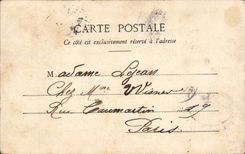 CARTE POSTALE
Ce côté est exclusivement réservé à l'adresse
Madame Lejean
Chez Mme Wisner
Rue Caumartin 17
Paris